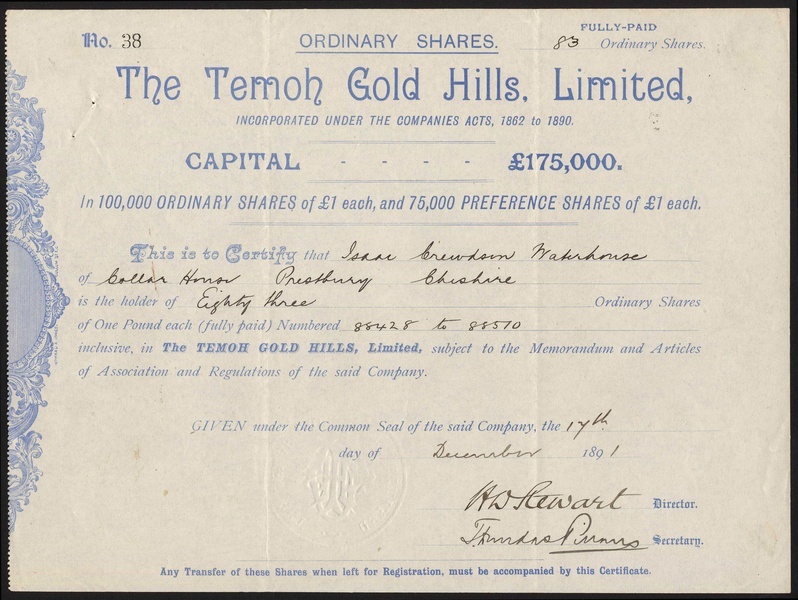 No. 38 ORDINARY SHARES. FULLY-PAID
83 Ordinary Shares.
The Temoh Gold Hills, Limited,
INCORPORATED UNDER THE COMPANIES ACTS, 1862 to 1890.
CAPITAL - - - - £175,000.
In 100,000 ORDINARY SHARES of £1 each, and 75,000 PREFERENCE SHARES of £1 each.
This is to Certify that Isaac Crewdson Waterhouse
of Collar House Prestbury Cheshire
is the holder of Eighty three Ordinary Shares
of One Pound each (fully paid) Numbered 88428 to 88510
inclusive, in The TEMOH GOLD HILLS, Limited, subject to the Memorandum and Articles
of Association and Regulations of the said Company.
GIVEN under the Common Seal of the said Company, the 17th
day of December 1891
H D Stewart Director.
Secretary.
Any Transfer of these Shares when left for Registration, must be accompanied by this Certificate.